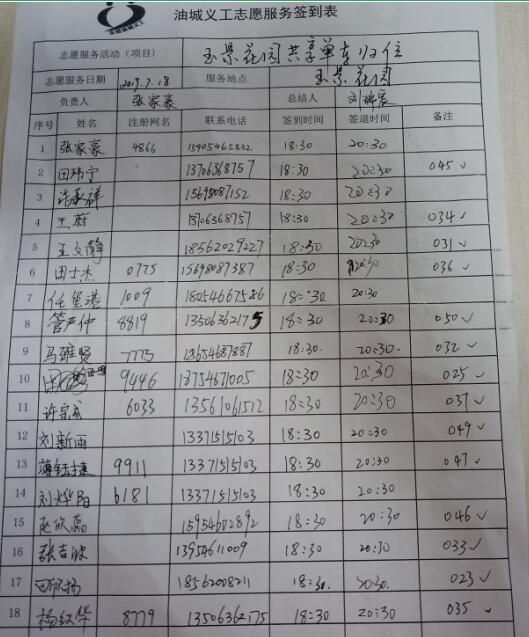 油城义工志愿服务签到表
志愿服务活动（项目） 玉景花园共享单车归位
志愿服务日期 2019.7.18 服务地点 玉景花园
负责人 张家豪 总结人
序号 姓名 注册网名 联系电话 签到时间 签退时间 备注
1 张家豪 4866 15905465832 18:30 20:30
2 田玮宁 13706368757 18:30 20:30 045 ✓
3 许承祥 15698087152 18:30 20:30
4 王蔚 13706368757 18:30 20:30 034 ✓
5 王文静 18562029227 18:30 20:30 031 ✓
6 田士杰 0775 15698087387 18:30 20:30 036 ✓
7 1009 18054667526 18:30. 20:30
8 管严仲 8819 13506362175 18:30 20:30 050 ✓
9 马雅贤 7775 18:30. 20:30. 032 ✓
10 9446 13754671005 18:30 20:30 025 ✓
11 许宗宝 6033 13561061512 18:30 20:30 037 ✓
12 刘新雨 13371515103 18:30 20:30 049 ✓
13 薄钰捷 9911 13371515103 18:30 20:30 047 ✓
14 刘烨阳 6181 13371515103 18:30 20:30
15 15954602892 18:30 20:30 046 ✓
16 张吉波 13954611009 18:30 20:30 033 ✓
17 田欣扬 18562008211 18:30. 20:30. 023 ✓
18 杨红华 8779 13506362175 18:30 20:30 035 ✓